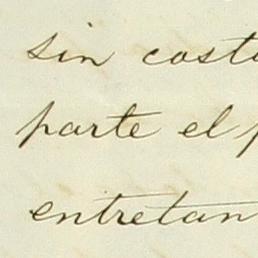 sin costo
parte el p
entretan